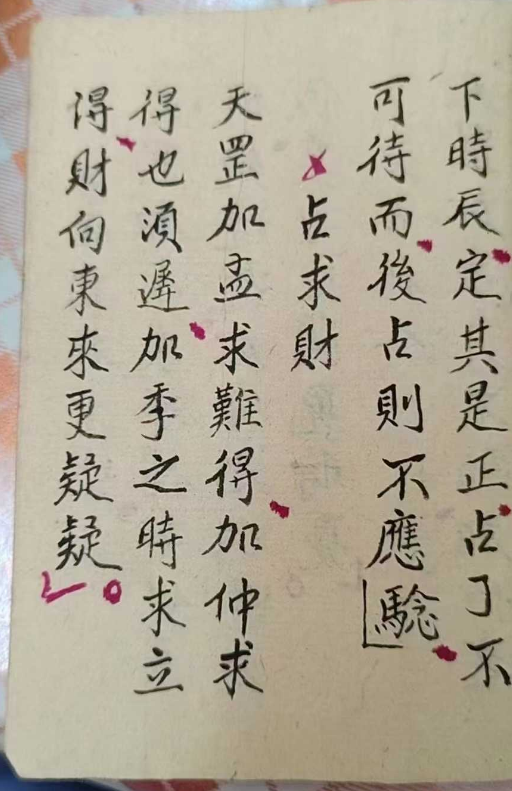 下時辰定其是正占了不
可待而後占則不應騐
占求財
天罡加孟求難得加仲求
得也須遲加季之時求立
得財向東來更疑疑